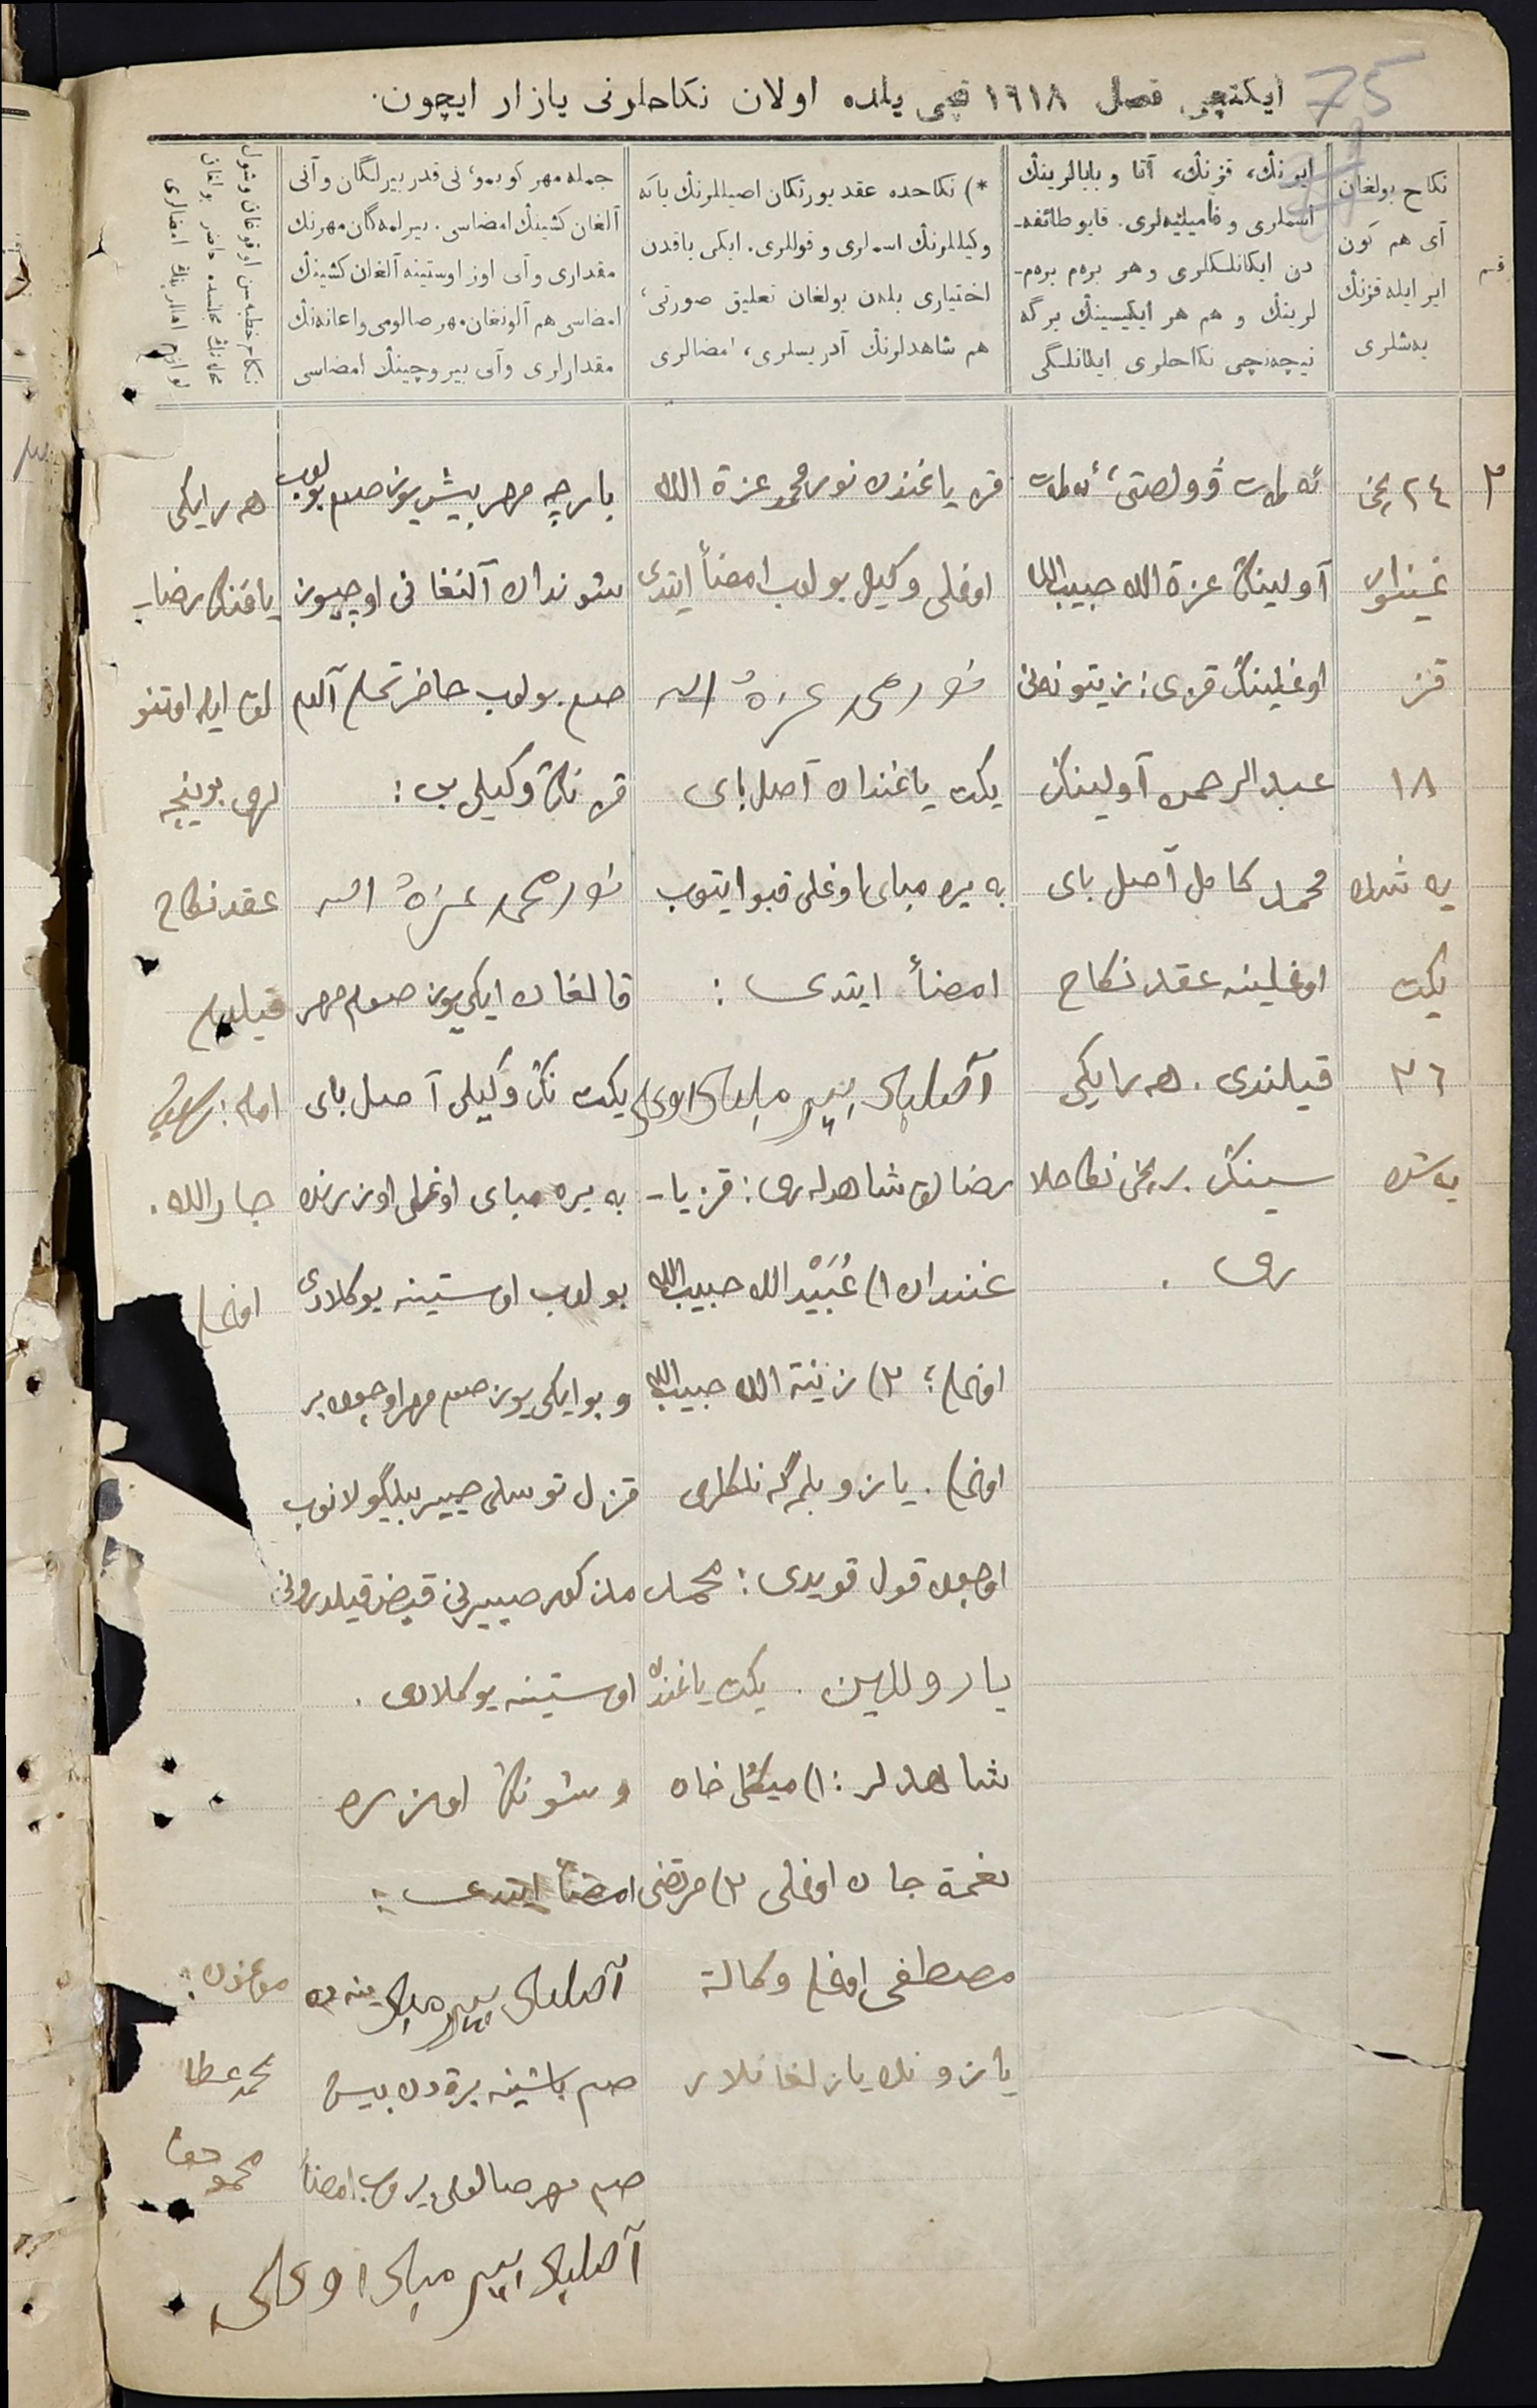 75
ایکنچی فصل ١٩١٨ نچی یلده اولان نکاحلرنی یازار ایچون.
قسم
نکاح بولغان
آی هم کون
ایر ایله قزنڭ
یەشلری
ایرنڭ، قزنڭ، آتا و بابالرینڭ
اسملری و فامیلیەلری. قایو طائفه‌-
دن ایکانلکلری و هر برەم برەم-
لرینڭ و هم هر ایکیسینڭ برگه
نیچەنچی نکاحلری ایکانلگی
*) نکاحده عقد یورتکان اصیللرنڭ یاکه
وکیللرنڭ اسملری و قوللری. ایکی یاقدن
اختیاری بلەن بولغان تعلیق صورتی،
هم شاهدلرنڭ آدریسلری، امضالری
جمله مهر کوبمو، نی قدر بیرلگان و آنی
آلغان کشینڭ امضاسی. بیرلمەگان مهرنڭ
مقداری و آنی اوز اوستینه آلغان کشینڭ
امضاسی هم آلونغان مهر صالومی و اعانەنڭ
مقدارلری و آنی بیروچینڭ امضاسی
نکاح خطبەسن اوقوغان و شول
٢
٢٤ نچی
غینوار
قز
١٨
یەشدە
یکت
٣٦
یەشدە
آولینڭ عزة الله حبیب الله
اوغلینڭ قزی: زیتونەنی
عبدالرحمن آولینڭ
محمد کامل آصل بای
اوغلینه عقد نکاح
قیلندی. هر ایکی
سینڭ برنچی نکاحلا
ری .
قز یاغندن نورمحمد عزة الله
اوغلی وکیل بولوب امضأ ایتدی
نورمحمد عزة الله
یکت یاغندان آصل بای
بەیرەمبای اوغلی قبول ایتوب
امضأ ایتدی :
آصلبای بیرمبای اوغلی
رضالق شاهدلەری: قز یا-
غندان ١) عُبَیْد الله حبیب الله
اوغلی؛ ٢) زینة الله حبیب الله
اوغلی. یازو بلمەگەنلکلری
اوچون قول قویدی: محمد
یاروللین. یکت یاغندن
شاهدلر: ١) میڭلی خان
نغمة جان اوغلی ٢) مرتضی
مصطفی اوغلی وکالة
یازونی یازلغانلار
بارچه مهر بیش یوز صوم بولوب
شوندان آلنغانی اوچیوز
صوم بولوب حاضر تمام آلدم
قزنڭ وکیلی من :
نورمحمد عزة الله
قالغان ایکی یوز صوم مهر
یکت نڭ وکیلی آصل بای
بەیرەمبای اوغلی اوزرنده
بولوب اوستینه یوکلادی
و بو ایکی یوز صوم مهر اوچون بر
قزل توسلی صییر بیلگولانوب
مذکور صییرنی قبض قیلدرونی
اوستینه یوکلادی .
و شونڭ اوزره
امضأ ایتدی :
آصلبای بیرمبای
صوم باشینه برەردن بیش
صوم مهر صالومی بیروب امضأ
آصلبای بیرمبای اوغلی
هر ایکی
یاقنڭ رضا-
لق ایله اوتنو
لری بوینچه
عقد نکاح
قیلدم
امام:
جارالله .
اوغلی
موءذن:
محمد عطا
محمودف